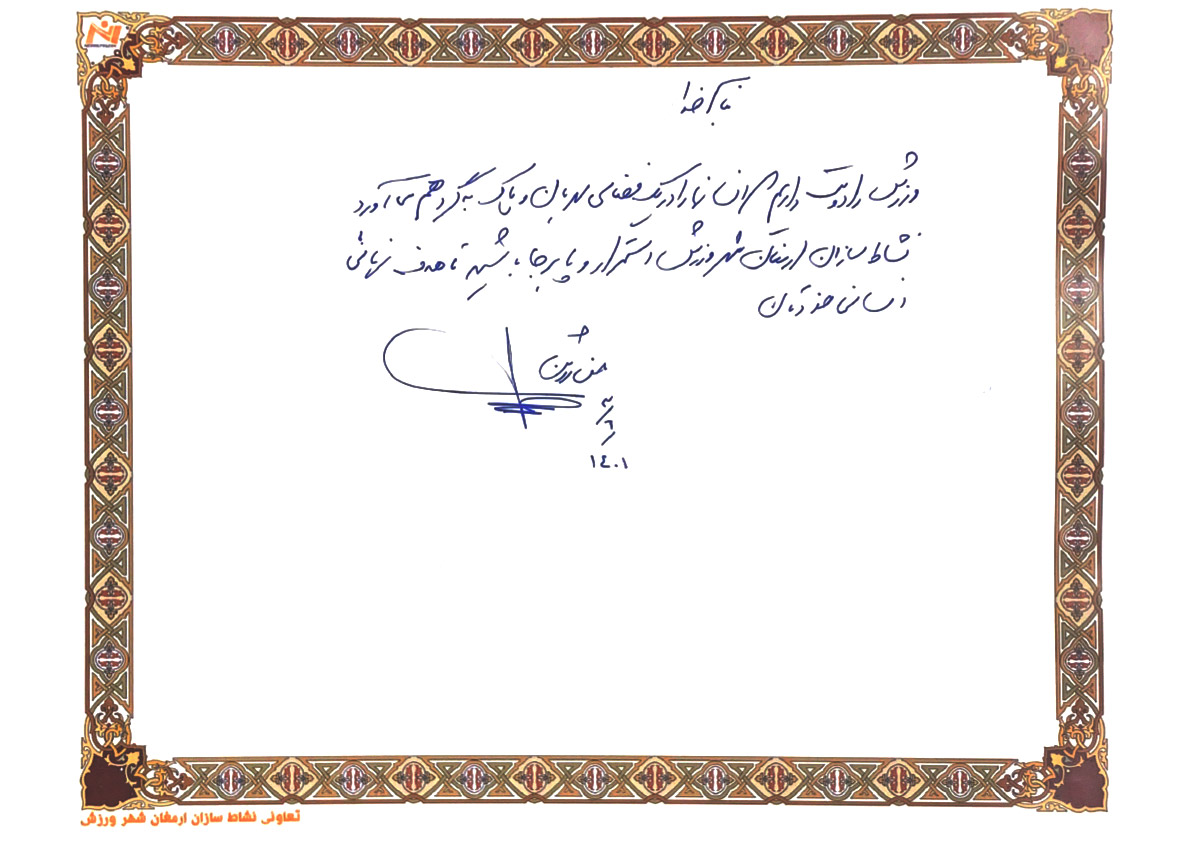 بنام خدا
ورزش را دوست داریم که انسانها را در یک فضای مهربان و پاک به گرد هم می‌آورد
نشاط سازان ارمغان شهر ورزش استمرار و پابرجا باشید تا هدف نهائی
انسانی خودتان
۳/۶
۱٤۰۱
تعاونی نشاط سازان ارمغان شهر ورزش